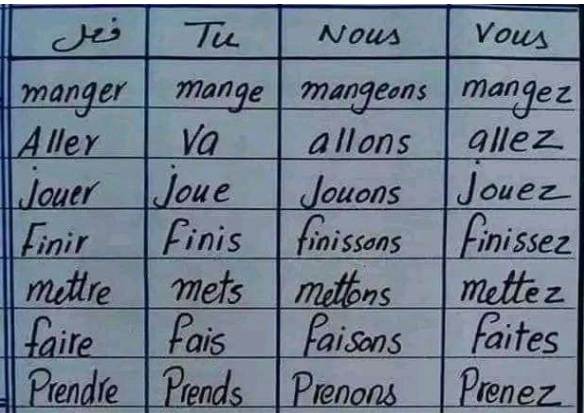 فعل Tu Nous Vous
manger mange mangeons mangez
Aller Va allons allez
Jouer Joue Jouons Jouez
Finir Finis finissons Finissez
mettre mets mettons mettez
faire Fais Faisons Faites
Prendre Prends Prenons Prenez